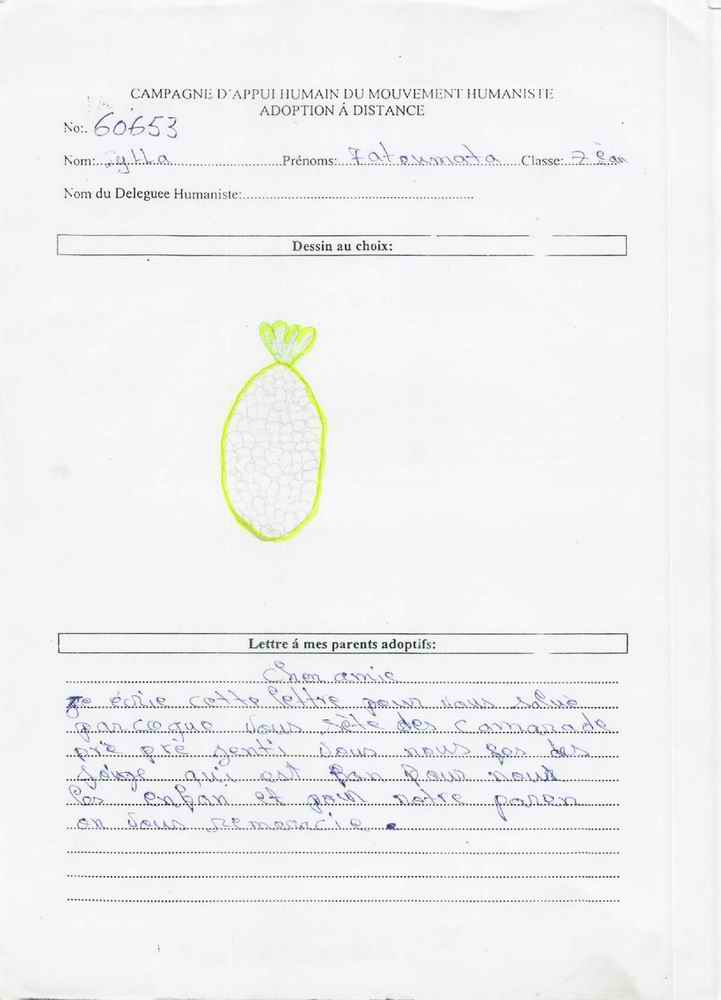 CAMPAGNE D'APPUI HUMAIN DU MOUVEMENT HUMANISTE
ADOPTION Á DISTANCE
No:. 60653
Nom: Sylla Prénoms: Fatoumata Classe: 7 èan
Nom du Deleguee Humaniste:
Dessin au choix:
Lettre á mes parents adoptifs:
Cher amie
Je écrie cette lettre pour vous salué
parceque vous sètè des camarade
prè prè jenti vous nous des
qui est pour nous
les enfan et pour notre paren
on vous remercie.